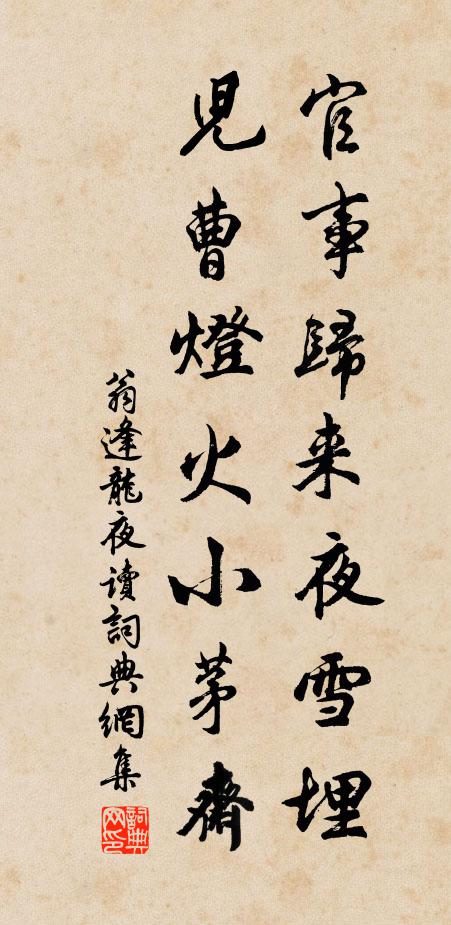 官事歸来夜雪埋
兒曹燈火小茅齋
翁逢龍夜讀詞典網集
詞典网印